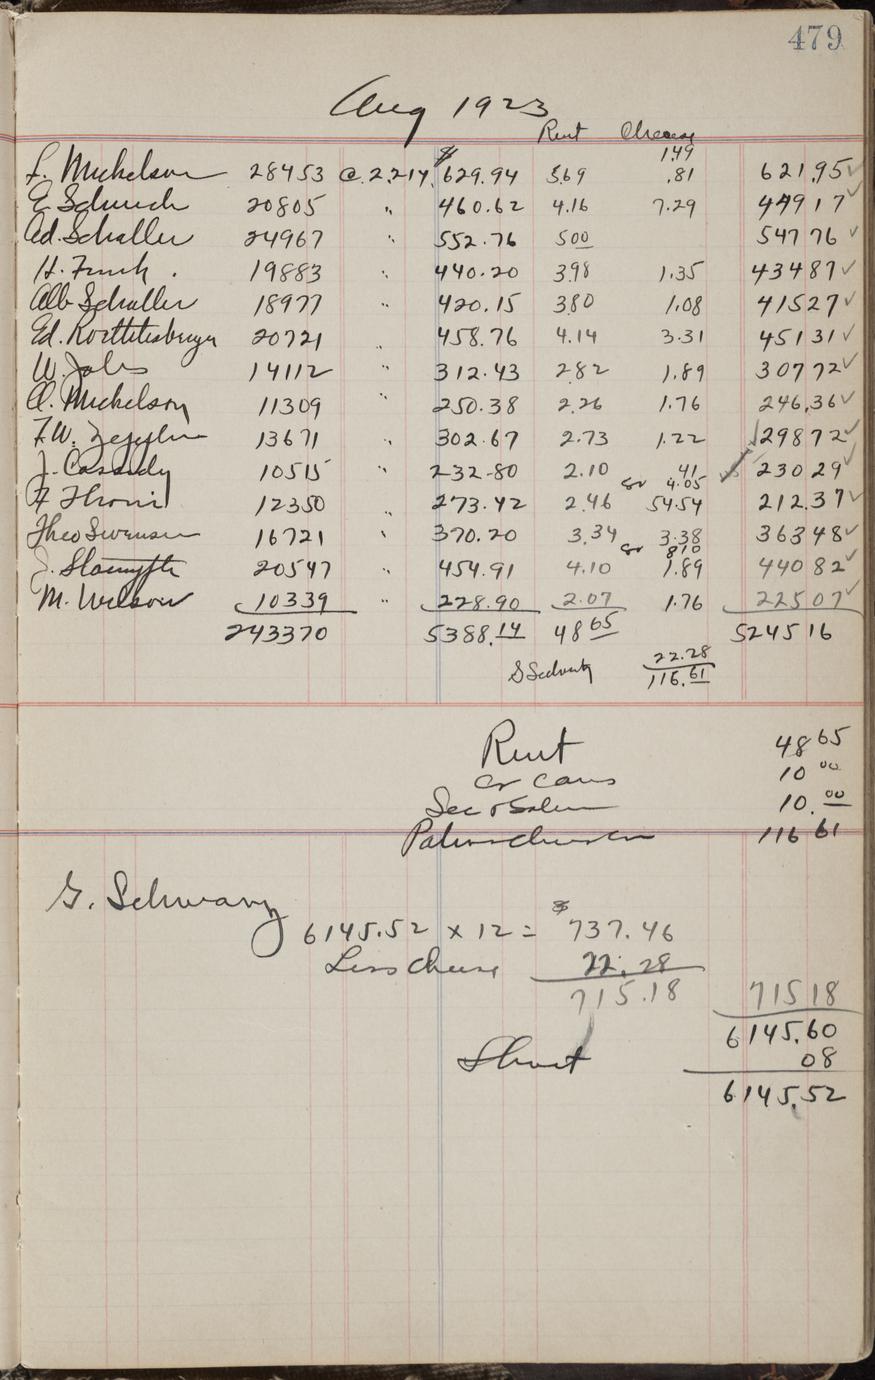 479
Aug 1923
Rent Cheese
1.49
L. Mickelson 28453 @ 2.214 $629.94 5.69 .81 621.95 ✓
E. Schuch 20805 " 460.62 4.16 7.29 449 17 ✓
Ad. Schaller 24967 " 552.76 500 547 76 ✓
H. Funk. 19883 " 440.20 398 1.35 434 87 ✓
Alb Schaller 18977 " 420.15 380 1.08 415 27 ✓
Ed. 20721 " 458.76 4.14 3.31 451 31 ✓
W. 14112 " 312.43 2.82 1.89 307 72 ✓
A. Mickelson 11309 " 250.38 2.26 1.76 246.36 ✓
F.W. 13671 " 302.67 2.73 1.22 298 72 ✓
J. Cassidy 10515 " 232.80 2.10 41 ✓ 230 29 ✓
cr 4.05
F 12350 " 273.42 2.46 54.54 212.37 ✓
Theo Swensen 16721 " 370.20 3.34 3.38 363 48 ✓
cr 810
J. 20547 " 454.91 4.10 1.89 440 82 ✓
M. Wilson 10339 " 228.90 2.07 1.76 225 07 ✓
243370 5388.14 48 65 5245 16
S 22.28
116.61
Rent 48 65
cr cans 10 00
Sec 10.00
116 61
G. Schwarz
6145.52 x 12 = $737.46
Less Cheese 22.28
715.18 715 18
6145.60
Short 08
6145.52